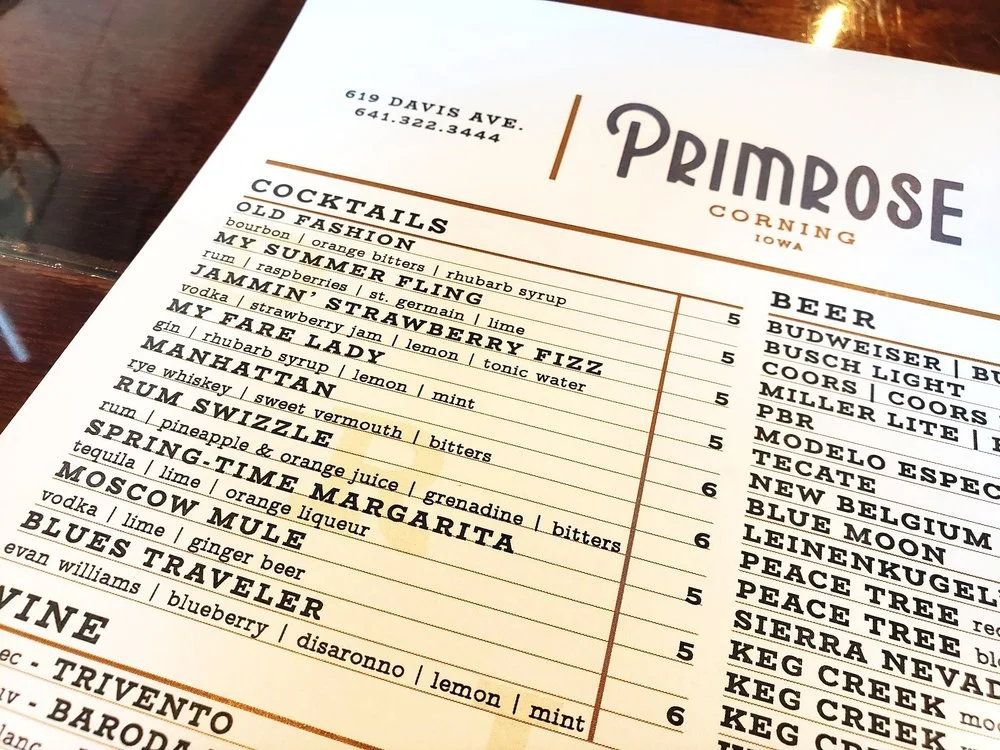 619 DAVIS AVE.
641.322.3444
PRIMROSE
CORNING
IOWA
COCKTAILS
OLD FASHION
bourbon | orange bitters | rhubarb syrup
5
MY SUMMER FLING
rum | raspberries | st. germain | lime
5
JAMMIN' STRAWBERRY FIZZ
vodka | strawberry jam | lemon | tonic water
5
MY FARE LADY
gin | rhubarb syrup | lemon | mint
5
MANHATTAN
rye whiskey | sweet vermouth | bitters
6
RUM SWIZZLE
rum | pineapple & orange juice | grenadine | bitters
6
SPRING-TIME MARGARITA
tequila | lime | orange liqueur
5
MOSCOW MULE
vodka | lime | ginger beer
5
BLUES TRAVELER
evan williams | blueberry | disaronno | lemon | mint
6
WINE
- TRIVENTO
- BARODA
BEER
BUDWEISER |
BUSCH LIGHT
COORS | COORS
MILLER LITE |
PBR
MODELO
TECATE
NEW BELGIUM
BLUE MOON
PEACE TREE
PEACE TREE
SIERRA
KEG CREEK
KEG CREEK
KEG CREEK